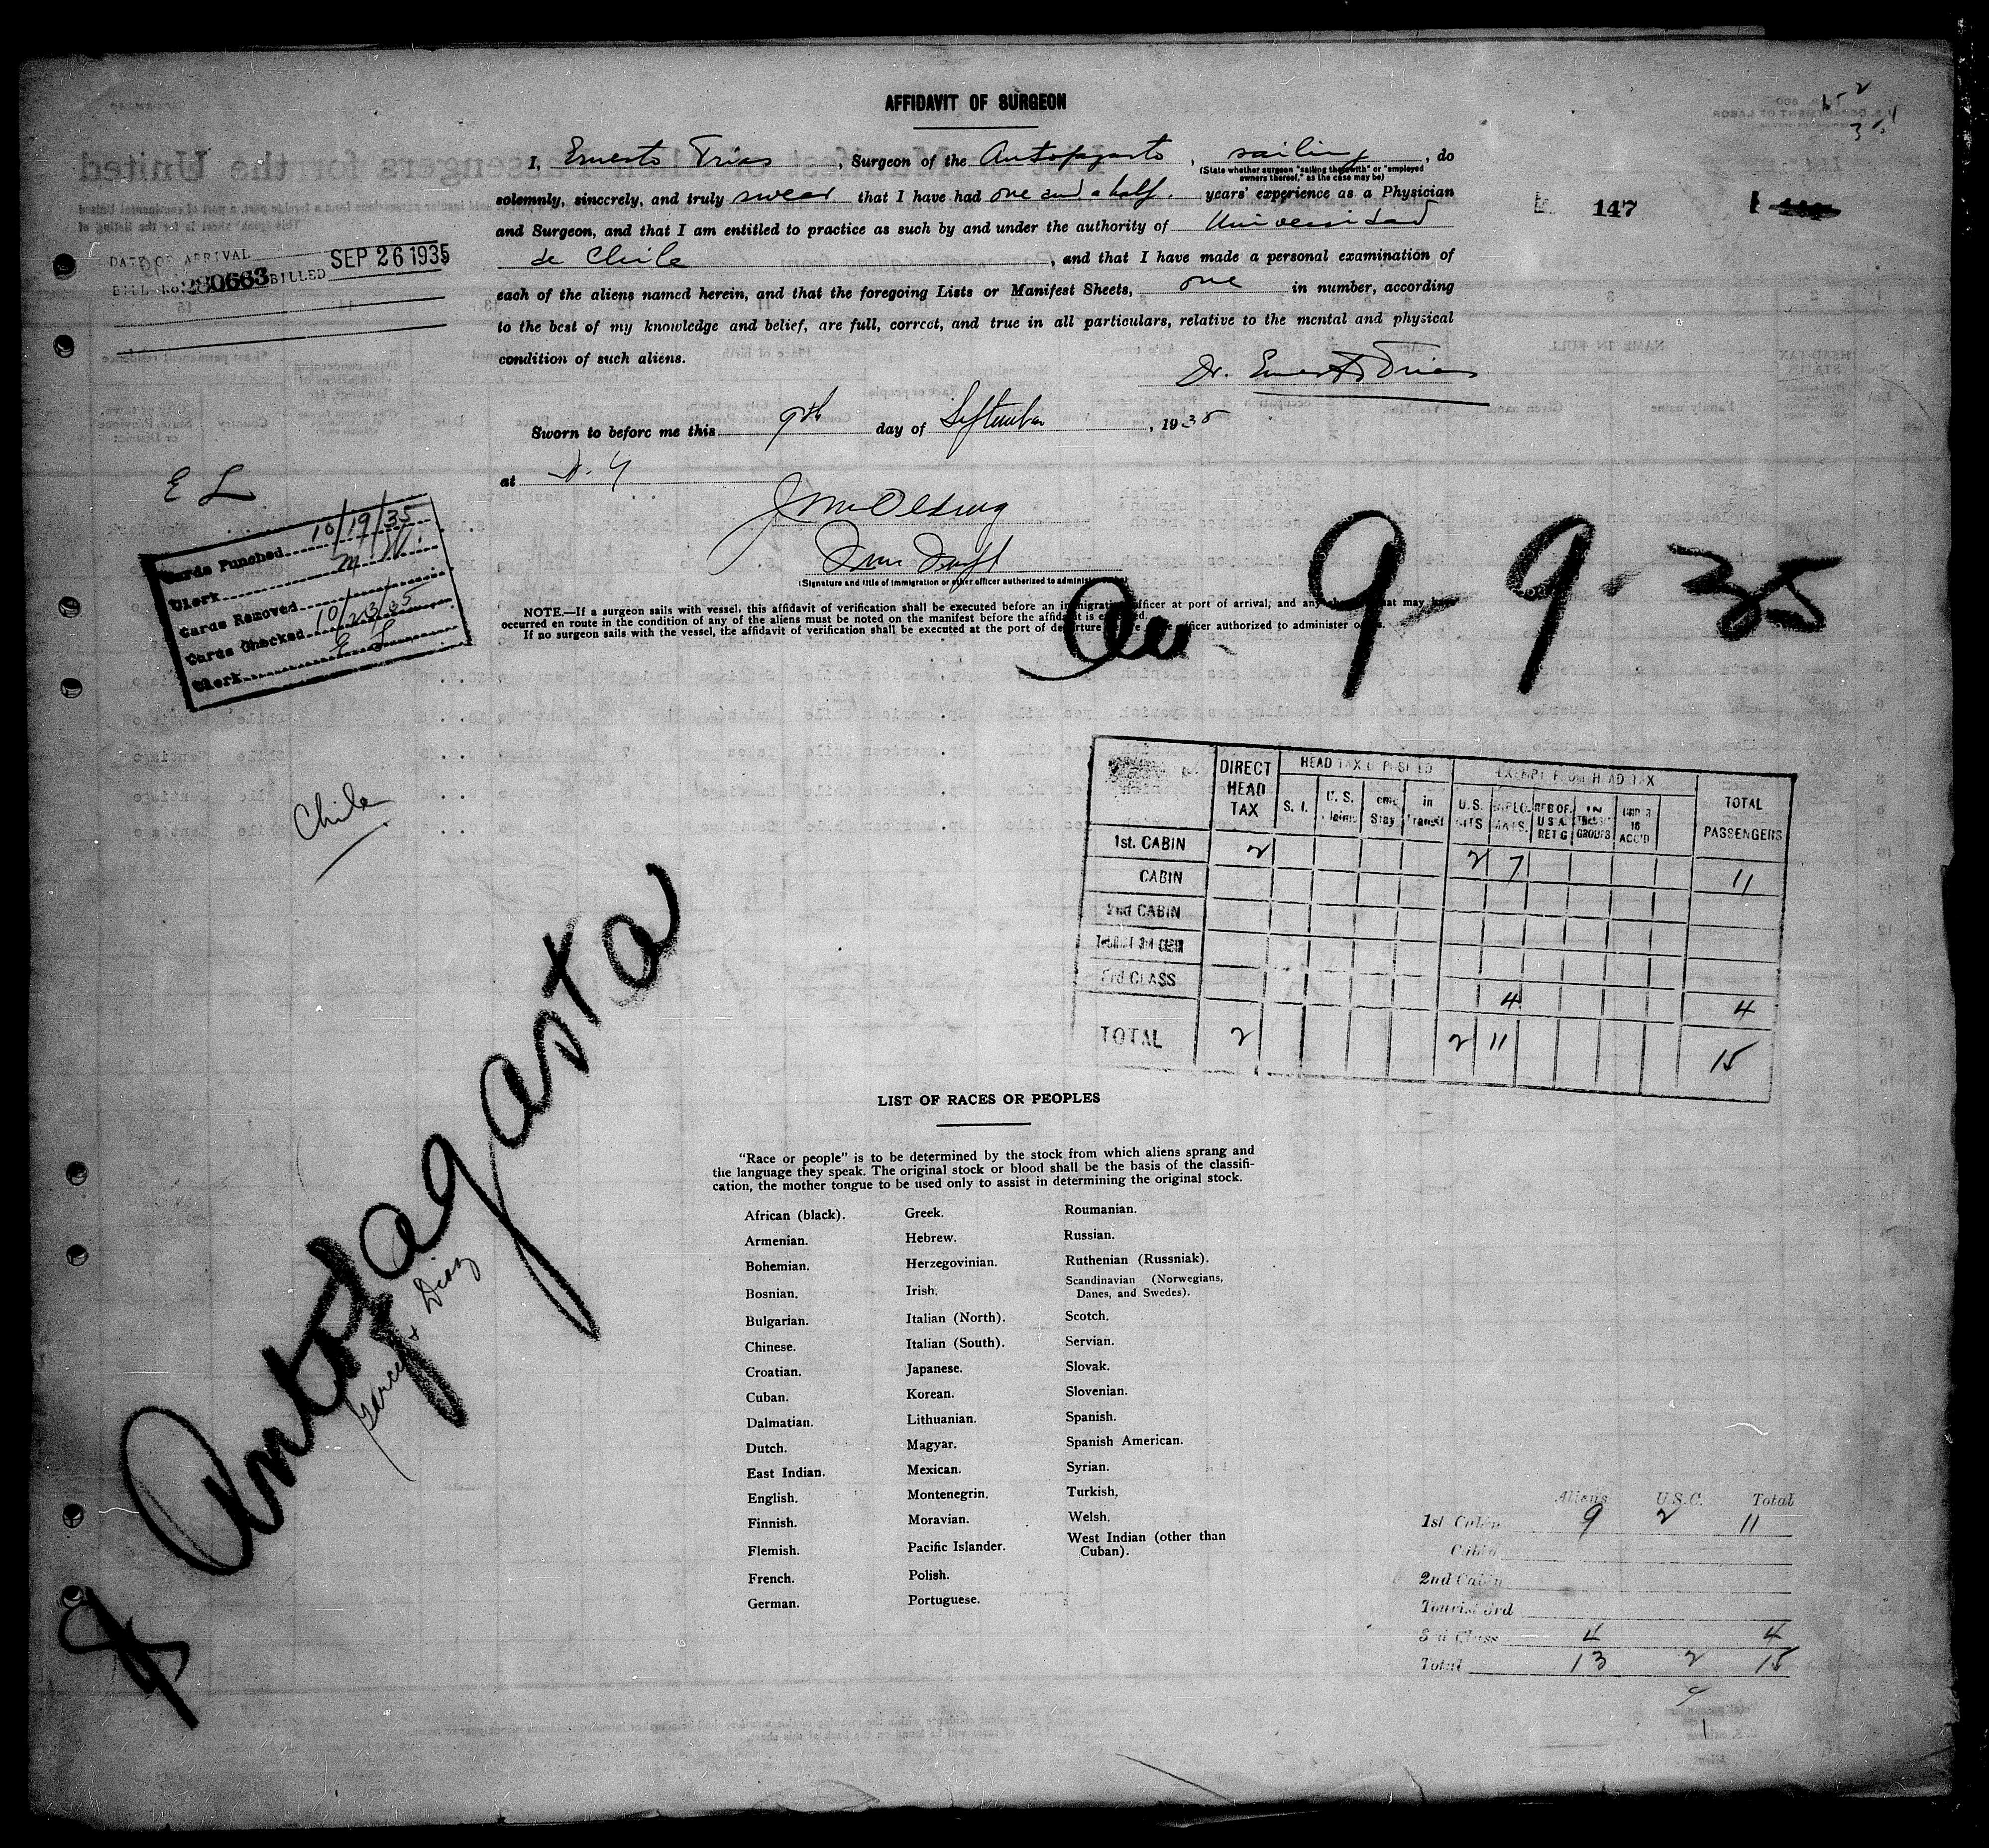 AFFIDAVIT OF SURGEON
I, Ernesto Trias, Surgeon of the Antofagasto, sailing, do
(State whether surgeon "sailing therewith" or "employed
owners thereof," as the case may be)
solemnly, sincerely, and truly swear that I have had one and a half. years' experience as a Physician
and Surgeon, and that I am entitled to practice as such by and under the authority of Universidad
de Chile, and that I have made a personal examination of
each of the aliens named herein, and that the foregoing Lists or Manifest Sheets, one in number, according
to the best of my knowledge and belief, are full, correct, and true in all particulars, relative to the mental and physical
condition of such aliens.
Dr. Ernesto Trias
Sworn to before me this 9th day of September, 1935
at N. Y
(Signature and title of immigration or other officer authorized to administer
NOTE.—If a surgeon sails with vessel, this affidavit of verification shall be executed before an immigration officer at port of arrival, and any that may
occurred en route in the condition of any of the aliens must be noted on the manifest before the affidavit is
If no surgeon sails with the vessel, the affidavit of verification shall be executed at the port of departure officer authorized to administer
147
DATE OF ARRIVAL
BILL No. 280663 BILLED SEP 26 1935
E L
Cards Punched 10/19/35
Clerk M W.
Cards Removed
Cards Checked 10/23/35
Clerk E L
9-9-35
Chile
Antofagasta
Garcia & Diaz
DIRECT HEAD TAX
HEAD TAX DEPOSITED
EXEMPT FROM HEAD TAX
TOTAL PASSENGERS
S. I. U. S. Claims Stay in Transit U.S. CITS DIPLOMATS. RES OF. U S A. RET G IN TRANSIT GROUPS UNDER 16 ACC'D
1st. CABIN 2 2 7 11
CABIN
2nd CABIN
TOURIST 3rd CABIN
3rd CLASS 4 4
TOTAL 2 2 11 15
LIST OF RACES OR PEOPLES
"Race or people" is to be determined by the stock from which aliens sprang and
the language they speak. The original stock or blood shall be the basis of the classifi-
cation, the mother tongue to be used only to assist in determining the original stock.
African (black).
Armenian.
Bohemian.
Bosnian.
Bulgarian.
Chinese.
Croatian.
Cuban.
Dalmatian.
Dutch.
East Indian.
English.
Finnish.
Flemish.
French.
German.
Greek.
Hebrew.
Herzegovinian.
Irish.
Italian (North).
Italian (South).
Japanese.
Korean.
Lithuanian.
Magyar.
Mexican.
Montenegrin.
Moravian.
Pacific Islander.
Polish.
Portuguese.
Roumanian.
Russian.
Ruthenian (Russniak).
Scandinavian (Norwegians,
Danes, and Swedes).
Scotch.
Servian.
Slovak.
Slovenian.
Spanish.
Spanish American.
Syrian.
Turkish.
Welsh.
West Indian (other than
Cuban).
Aliens U.S.C. Total
1st Cabin 9 2 11
Cabin
2nd Cabin
Tourist 3rd
3rd Class 4 4
Total 13 2 15